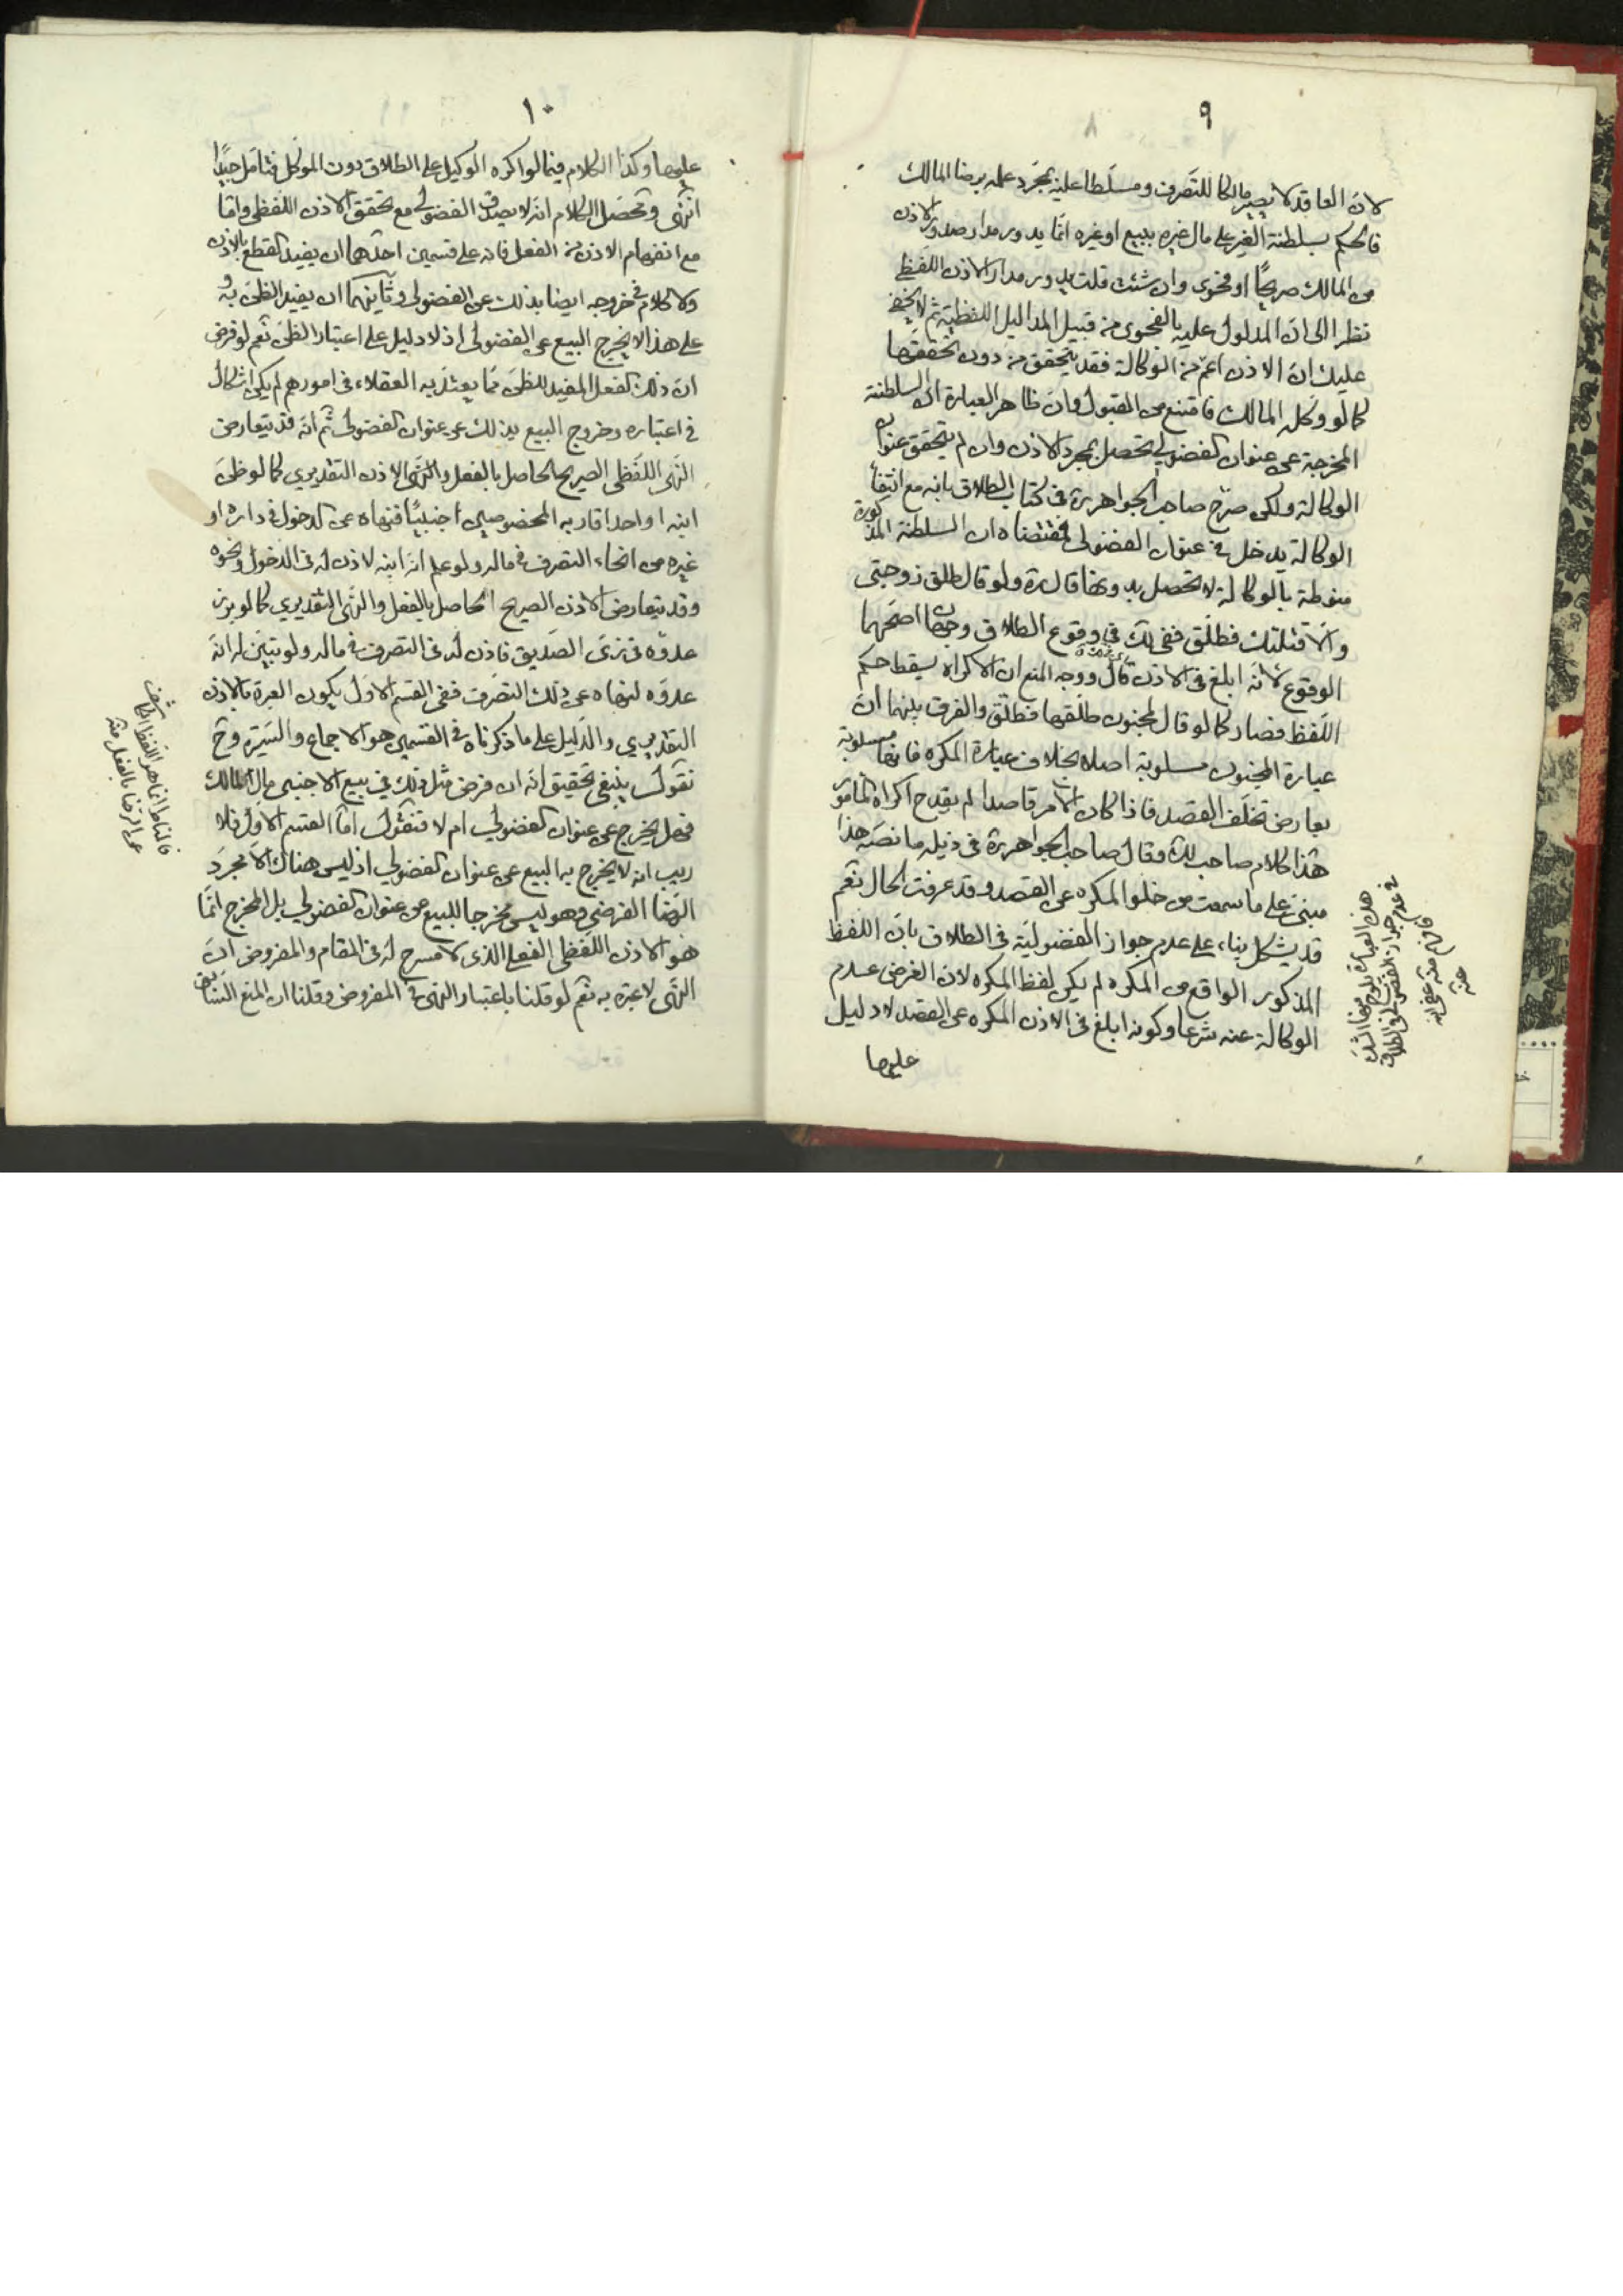 ٩
لانّ العاقد لا يصير مالكا للتصرف ومسلّطا عليه بمجرّد علمه برضا المالك
فالحكم بسلطنة الغير على مال غيره ببيع او غيره انّما يدور مدار صدور الاذن
من المالك صريحًا او فحوى وان شئت قلت يدور مدار الاذن اللفظي
نظرا الى انّ المدلول عليه بالفحوى من قبيل المداليل اللفظيّة ثم لا يخفى
عليك انّ الاذن اعمّ من الوكالة فقد يتحقق من دون تحققها
كما لو وكّله المالك فامتنع من القبول وانّ ظاهر العبارة انّ السلطنة
المخرجة عن عنوان الفضولي تحصل بمجرد الاذن وان لم يتحقق عنوان
الوكالة ولكن صرّح صاحب الجواهر ره في كتاب الطلاق بانه مع انتفاء
الوكالة يدخل في عنوان الفضولي فمقتضاه ان السلطنة المذكورة
منوطة بالوكالة لا تحصل بدونها قال ره ولو قال طلّق زوجتى
والّا قتلتك فطلّق ففي لك في وقوع الطلاق وجهان اصحّهما
الوقوع لانّه ابلغ في الاذن قال ووجه المنع ان الاكراه يسقط حكم
اللّفظ فصار كما لو قال لمجنون طلّقها فطلّق والفرق بينهما انّ
عبارة المجنون مسلوبة اصلا بخلاف عبارة المكره فانها مسلوبة
بعارض تخلّف القصد فاذا كان الامر قاصدا لم يقدح اكراه المامور
هذا كلام صاحب لك وقال صاحب الجواهر ره في ذيله ما نصّه هذا
مبنىّ على ما سمعت من خلو المكره عن القصد وقد عرفت الحال نعم
قد يشكل بناء على عدم جواز الفضوليّة في الطلاق بانّ اللفظ
المذكور الواقع من المكره لم يكن لفظ المكره لان الغرض عدم
الوكالة عنه شرعا وكونه ابلغ في الاذن المكره عن القصد لا دليل
عليها
هذه العبارة يلوح منها الشك
في عدم جواز الفضولي في الطلاق
فافهم منه عفى
عنه
١٠
عليها وكذا الكلام فيما لو اكره الوكيل على الطلاق دون الموكّل فتامّل جيّدا
انتهى وتحصّل الكلام انه لا يصدق الفضولي مع تحقق الاذن اللفظي وامّا
مع انفهام الاذن من الفعل فانه على قسمين احدهما ان يفيد القطع بالاذن
ولا كلام في خروجه ايضا بذلك عن الفضولي وثانيهما ان يفيد الظنّ به و
على هذا لا يخرج البيع عن الفضولي اذ لا دليل على اعتبار الظنّ نعم لو فرض
انّ ذلك الفعل المفيد للظنّ ممّا يعتدّ به العقلاء في امورهم لم يكن اشكال
في اعتباره وخروج البيع بذلك عن عنوان الفضولي ثم انّه قد يتعارض
النّهى اللّفظي الصريح الحاصل بالفعل والاذن التقديري كما لو ظنّ
ابنه او احد اقاربه المخصوصين اجنبيًّا فنهاه عن الدخول في داره او
غيره من انحاء التصرف في ماله ولو علم انه ابنه لاذن له في الدخول ونحوه
وقد يتعارض الاذن الصريح الحاصل بالفعل والنّهى التقديري كما لو برز
عدوّه في زىّ الصّديق فاذن له في التصرف في ماله ولو تبيّن له انه
عدوّه لنهاه عن ذلك التصرّف ففى القسم الاول يكون العبرة بالاذن
التقديري والدّليل على ما ذكرناه في القسمين هو الاجماع والسّيرة وح
نقول ينبغي تحقيق انه ان فرض مثل ذلك في بيع الاجنبي مال المالك
فهل يخرج عن عنوان الفضولي ام لا فنقول امّا القسم الاوّل فلا
ريب انه لا يخرج به البيع عن عنوان الفضولي اذ ليس هناك الّا مجرّد
الرّضا الفرضي وهو ليس مخرجا للبيع عن عنوان الفضولي بل المخرج انّما
هو الاذن اللّفظي الفعلي الذى لا مسرح له في المقام والمفروض انّ
النّهى لا عبرة به نعم لو قلنا باعتبار النهى في المفروض وقلنا ان المنع السّابق
فالمناط انما هو اللفظ الكاشف
عن الرضا بالفعل منه